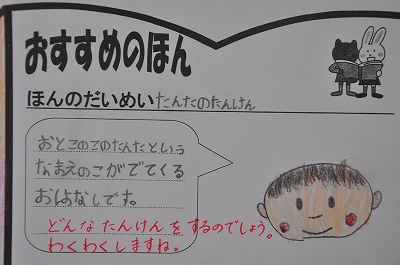 おすすめのほん
ほんのだいめい たんたのたんけん
おとこのこのたんたという
なまえのこがでてくる
おはなしです。
どんなたんけんをするのでしょう。
わくわくしますね。